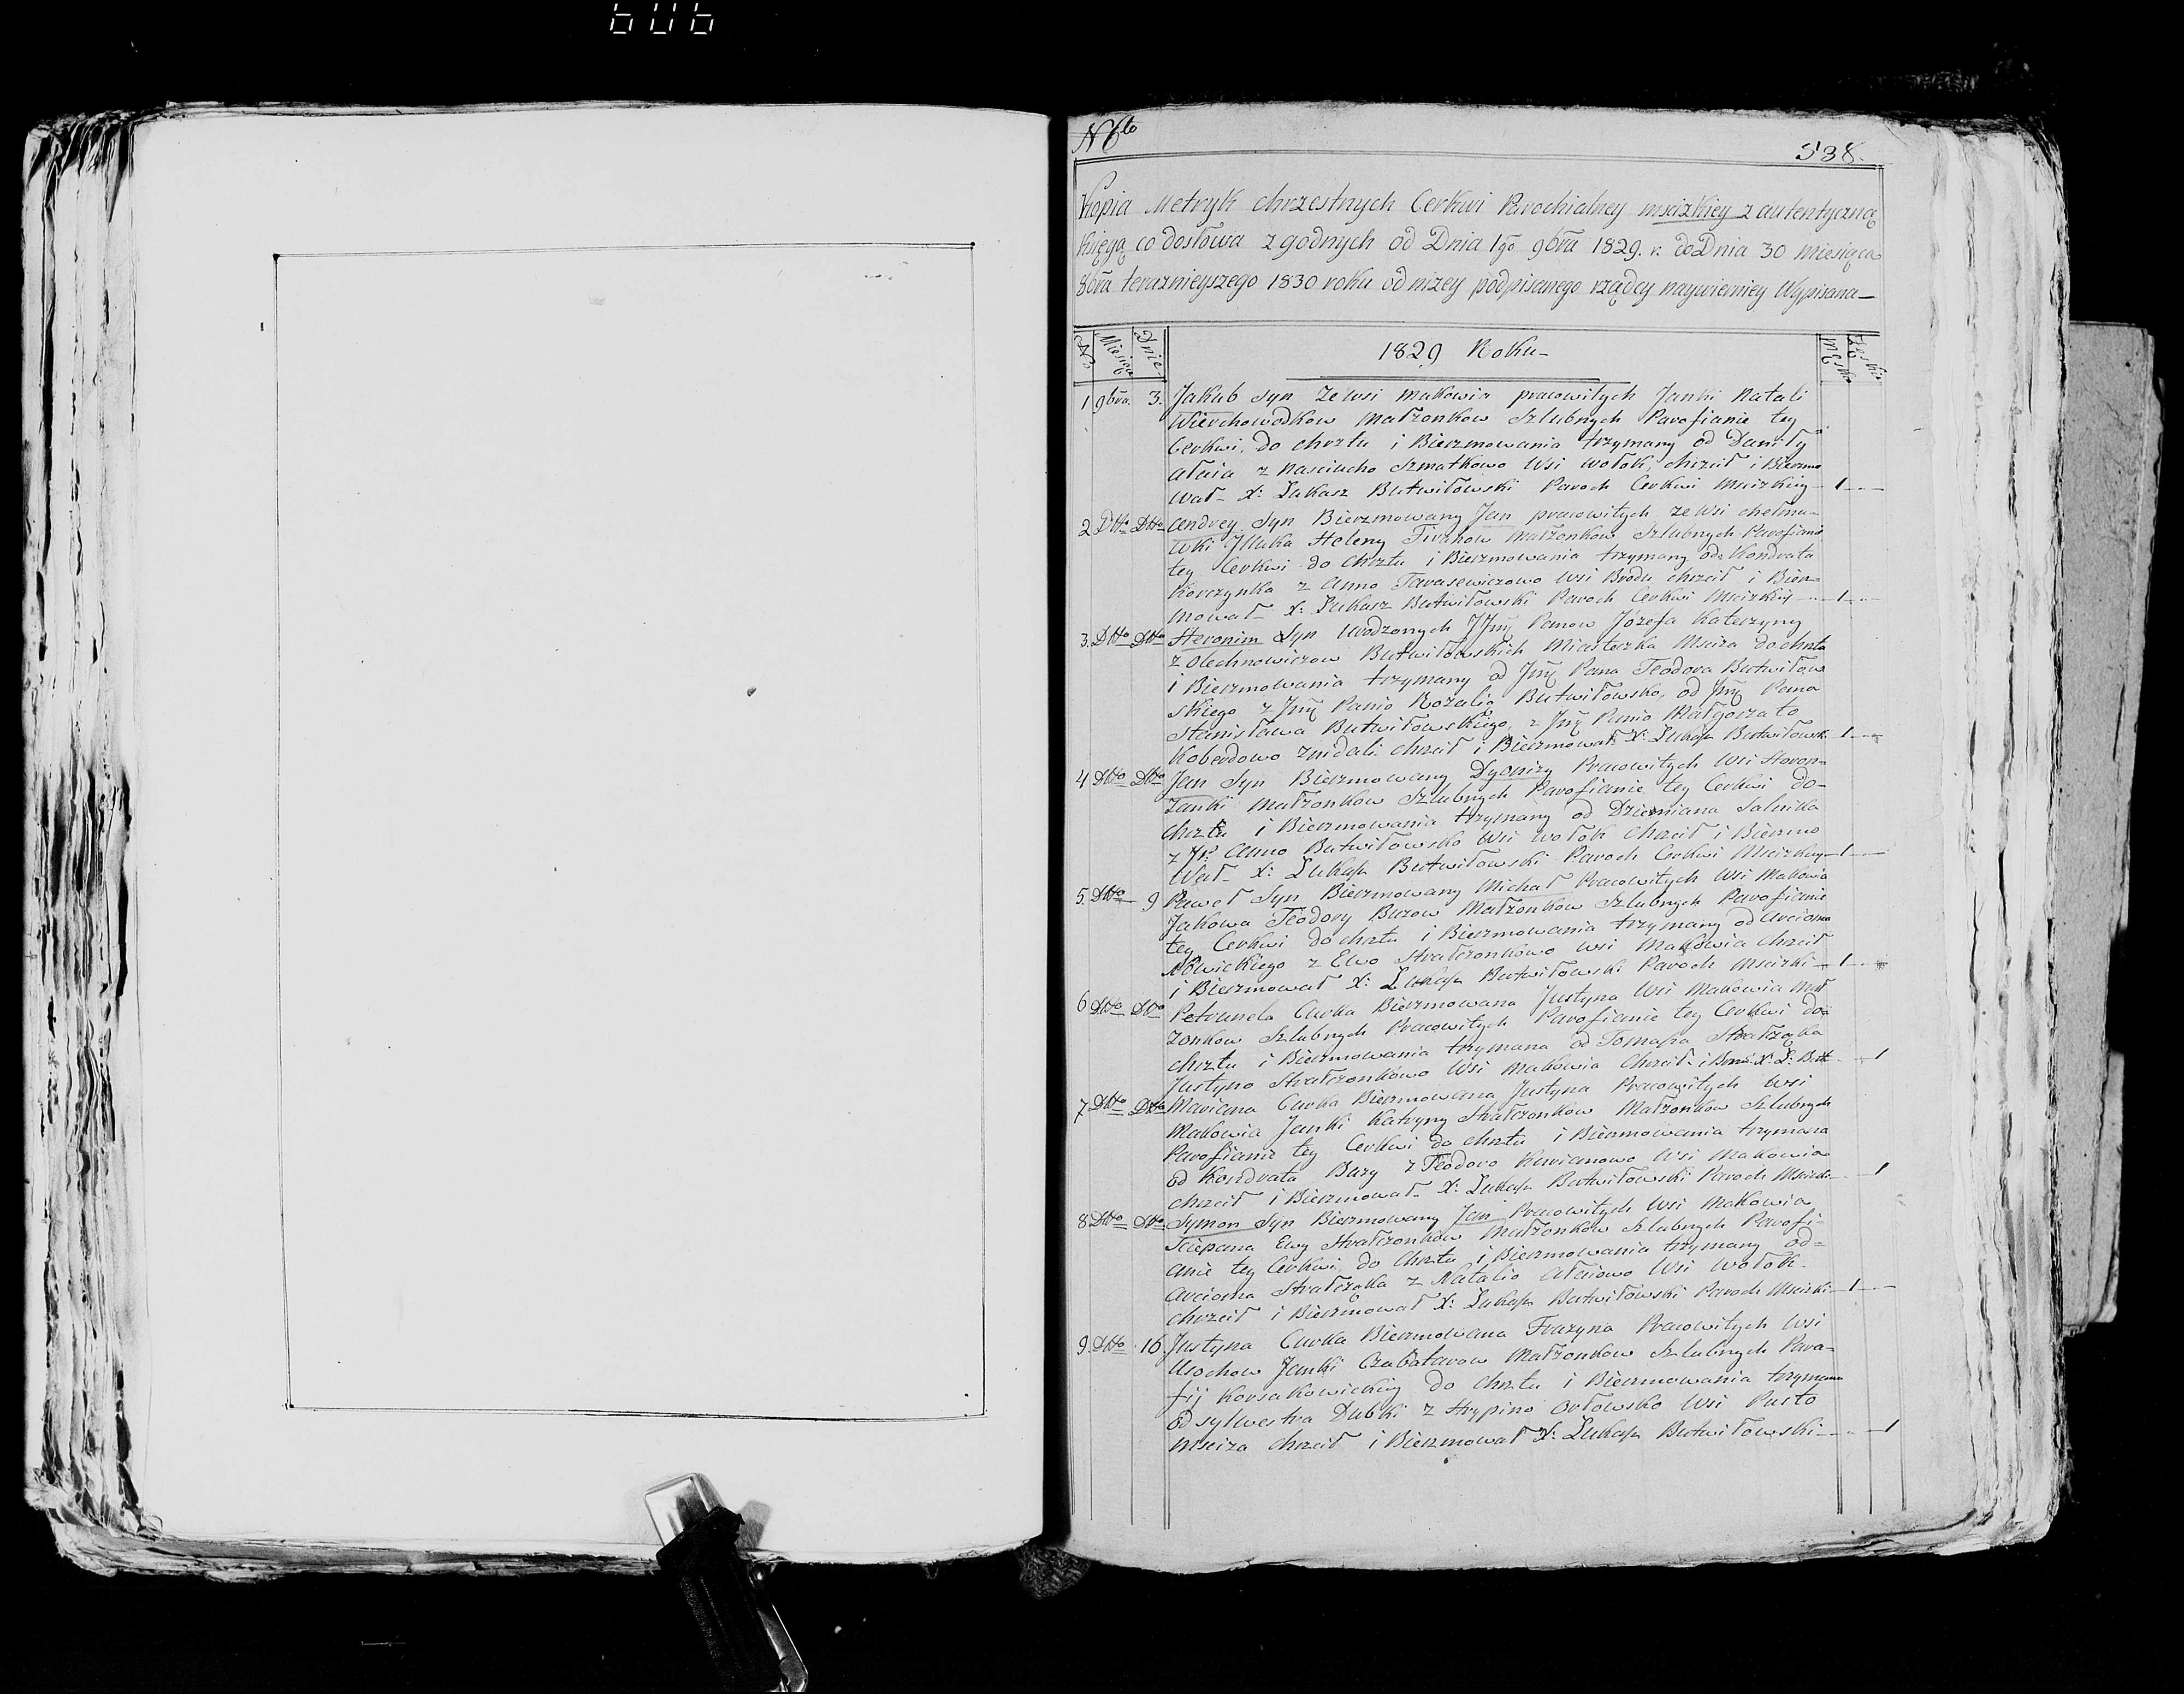 606
N 6to
538.
Kopia Metryk chrzestnych Cerkwi Parochialney mscizkiey z autentyczną
księgą co do słowa zgodnych od Dnia 1go 9bra 1829. r. do Dnia 30 miesiąca
8bra teraznieyszego 1830 roku od nizey podpisanego rządcy naywierniey Wypisana
No Miesiąc Dnie 1829 Roku Męska Żeńskie
1 9bra. 3. Jakub syn ze wsi makowia pracowitych Janki Natali
Wierchowodkow Małzonkow Szlubnych Parofianie tey
Cerkwi, do chrztu i Bierzmowania trzymany od Daniły
z Nasciucho Szmatkowo Wsi Wołok, chrzcił i Bierzmo
wał X: Łukasz Butwiłowski Paroch Cerkwi Mscizkiey 1
2 Dtto Dtto Andrey Syn Bierzmowany Jan pracowitych ze Wsi chełma-
wki Heleny Małzonkow Szlubnych Parofianie
tey Cerkwi do Chrztu i Bierzmowania trzymany od Kondrata
Korczynka z Anno Tarasewiczowo Wsi Brodu chrzcił i Bierz
mował X: Łukasz Butwiłowski Paroch Cerkwi Mscizkiey 1
3. Dtto Dtto Heronim Syn Urodzonych Panow Józefa Katerzyny
z Olechnowiczow Butwiłowskich Miasteczka Msciza do chrztu
i Bierzmowania trzymany od Pana Teodora Butwiłow
skiego z Panio Rozalią Butwiłowsko, od Pana
Stanisława Butwiłowskiego, z Panio Małgorzato
Koberdowo chrzcił i Bierzmował X: Łukasz Butwiłowski 1
4 Dtto Dtto Jan Syn Bierzmowany Dyonizy Pracowitych Wsi
Małzonkow Szlubnych Parofianie tey Cerkwi do-
Chrztu i Bierzmowania trzymany od Dziemiana Salnika
z Anno Butwiłowsko Wsi Wołok Chrzcił i Bierzmo
Wał X: Łukasz Butwiłowski Paroch Cerkwi Mscizkiey 1
5. Dtto 9 Paweł Syn Bierzmowany Michał Pracowitych Wsi Makowia
Jakowa Teodory Buzow Małzonkow Szlubnych Parofianie
tey Cerkwi do chrztu i Bierzmowania trzymany od Arcioma
Nowickiego z Ewo Strałczonkowo wsi Makowia Chrzcił
i Bierzmował X: Łukasz Butwiłowski Paroch Mscizki 1
6 Dtto Dtto Petrunela Curka Bierzmowana Justyna Wsi Makowia Mał
zonkow Szlubnych Pracowitych Parofianie tey Cerkwi do
chrztu i Bierzmowania trzymana od Tomasza Strałczonka
Justyno Strałczonkowo Wsi Makowia Chrzcił i X: Ł: But 1
7 Dtto Dtto Mariana Curka Bierzmowana Justyna Pracowitych wsi
Makowia Janki Katryny Strałczonkow Małzonkow Szlubnych
Parofianie tey Cerkwi do chrztu i Bierzmowania trzymana
od Kondrata Buzy z Teodoro Wsi Makowia
chrzcił i Bierzmował X: Łukasz Butwiłowski Paroch 1
8 Dtto Dtto Symon Syn Bierzmowany Jan Pracowitych Wsi Makowia
Sciepana Ewy Strałczonkow Małzonkow Szlubnych Parofi-
anie tey Cerkwi, do Chrztu i Bierzmowania trzymany od-
Arcioma Strałczonka z Natalio Wsi Wołok
chrzcił i Bierzmował X: Łukasz Butwiłowski Paroch Mscizki 1
9. Dtto 16. Justyna Curka Bierzmowana Frazyna Pracowitych Wsi
Usochow Janki Czabatarow Małzonkow Szlubnych Para-
fij Korsakowickiey do Chrztu i Bierzmowania trzymana
od sylwestra Dubki z Orłowsko Wsi Pusto
msciza chrzcił i Bierzmował X: Łukasz Butwiłowski 1